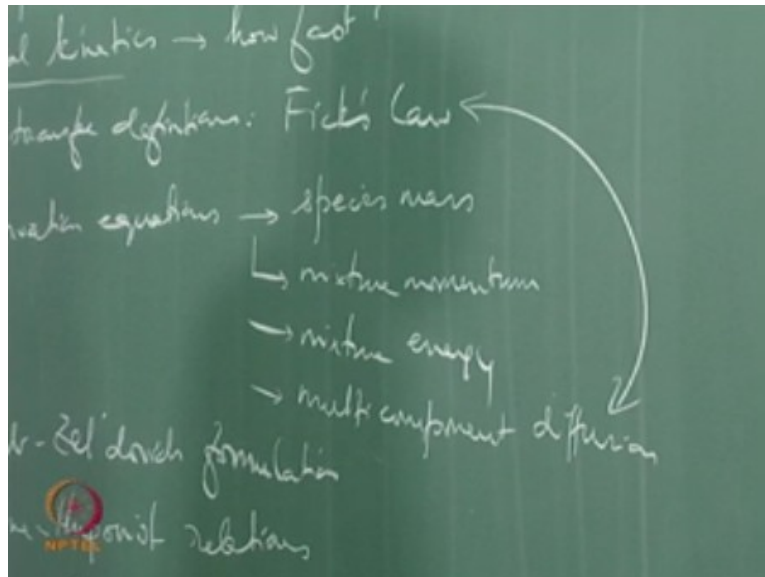 al kinetics → how fast
transfer definitions: Fick's Law
rvation equations → species mass
↳ mixture momentum
→ mixture energy
→ multicomponent diffusion
b-Zel'dovich formulation
ne-Hugoniot relations
NPTEL